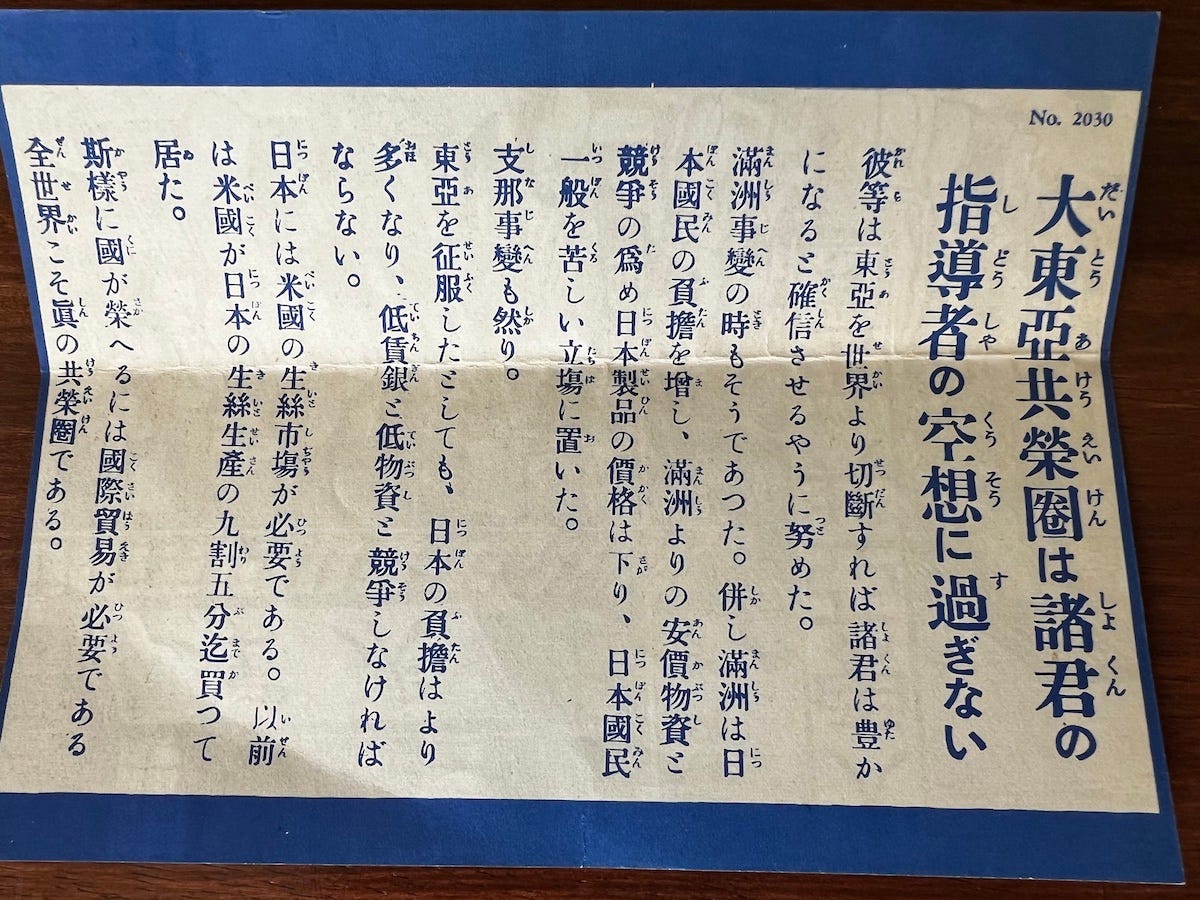 No. 2030
大東亞共榮圈は諸君の
指導者の空想に過ぎない
彼等は東亞を世界より切斷すれば諸君は豊か
になると確信させるやうに努めた。
滿洲事變の時もそうであつた。併し滿洲は日
本國民の負擔を增し、滿洲よりの安價物資と
競爭の爲め日本製品の價格は下り、日本國民
一般を苦しい立塲に置いた。
支那事變も然り。
東亞を征服したとしても、日本の負擔はより
多くなり、低賃銀と低物資と競爭しなければ
ならない。
日本には米國の生絲市塲が必要である。以前
は米國が日本の生絲生產の九割五分迄買つて
居た。
斯樣に國が榮へるには國際貿易が必要である
全世界こそ眞の共榮圈である。